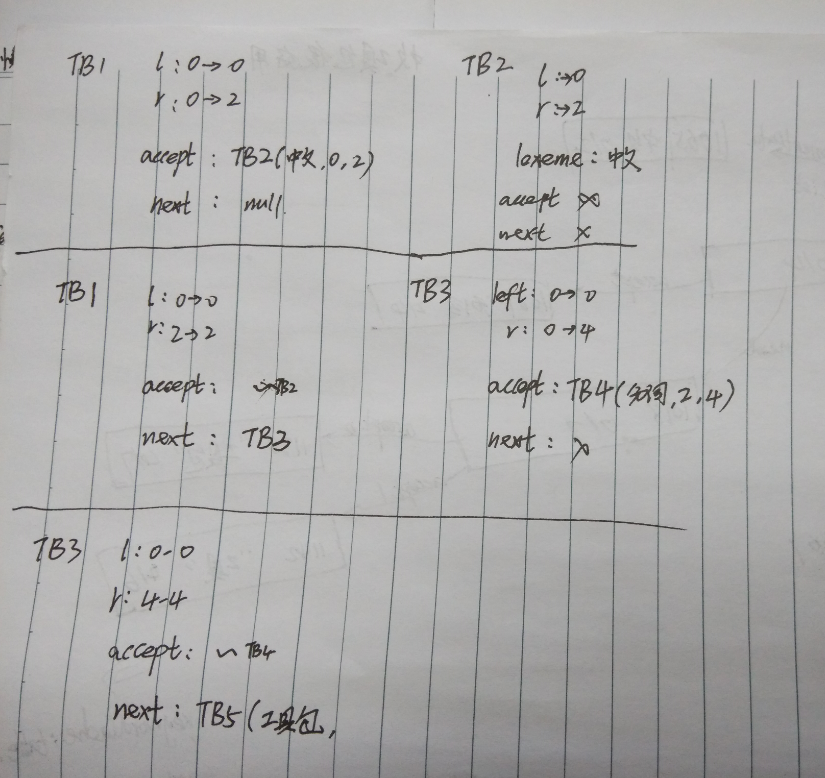 TB1 l: 0→0
r: 0→2
accept: TB2(中文, 0, 2)
next: null.
TB2 l: →0
r: →2
lexeme: 中文
accept ×
next ×
TB1 l: 0→0
r: 2→2
accept: TB2
next: TB3
TB3 left: 0→0
r: 0→4
accept: TB4(分词, 2, 4)
next: ×
TB3 l: 0-0
r: 4-4
accept: ~ TB4
next: TB5(工具包,